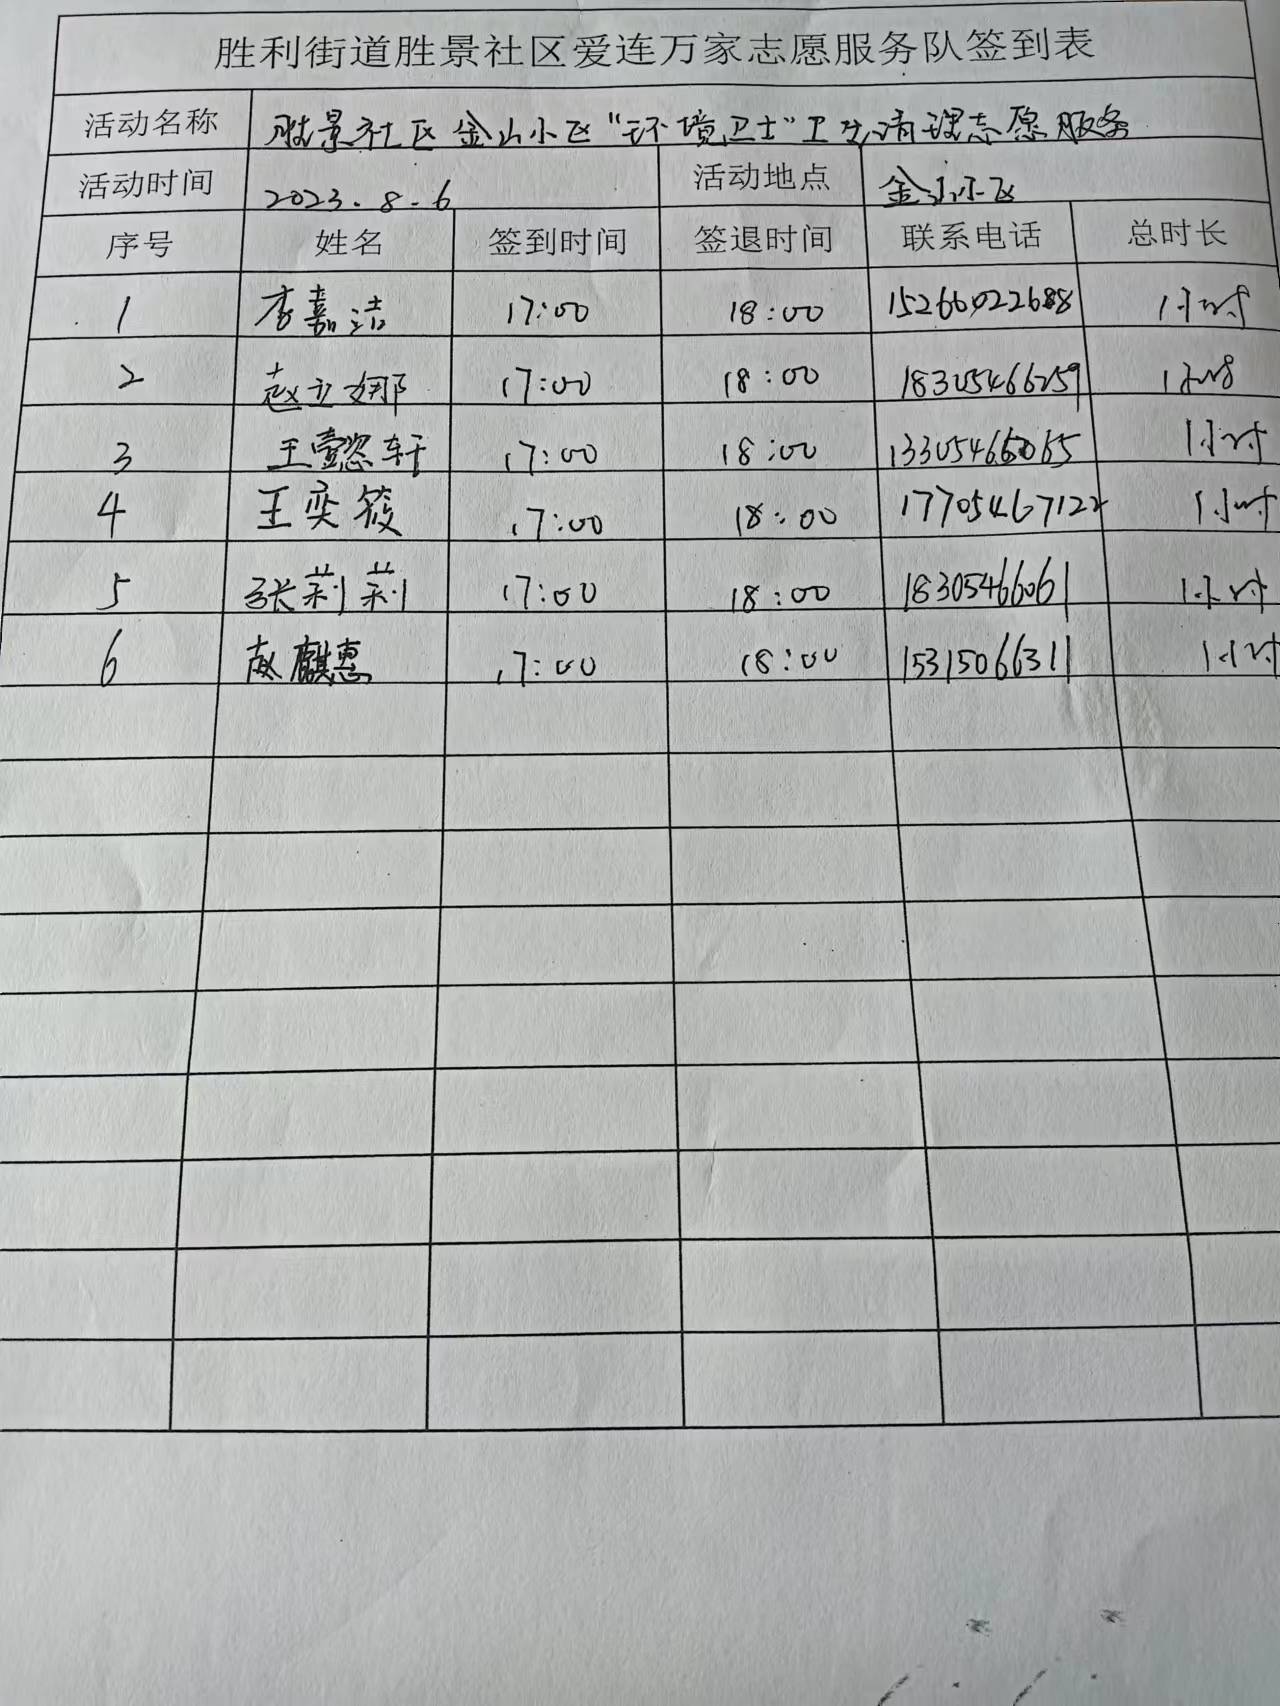 胜利街道胜景社区爱连万家志愿服务队签到表
活动名称 胜景社区金山小区“环境卫士”卫生清理志愿服务
活动时间 2023.8.6 活动地点 金山小区
序号 姓名 签到时间 签退时间 联系电话 总时长
1 李嘉洁 17:00 18:00 15266022688 1小时
2 赵立娜 17:00 18:00 18305466259 1小时
3 王懿轩 17:00 18:00 13305466065 1小时
4 王奕筱 17:00 18:00 17705467122 1小时
5 张莉莉 17:00 18:00 18305466061 1小时
6 赵麒惠 17:00 18:00 15315066311 1小时